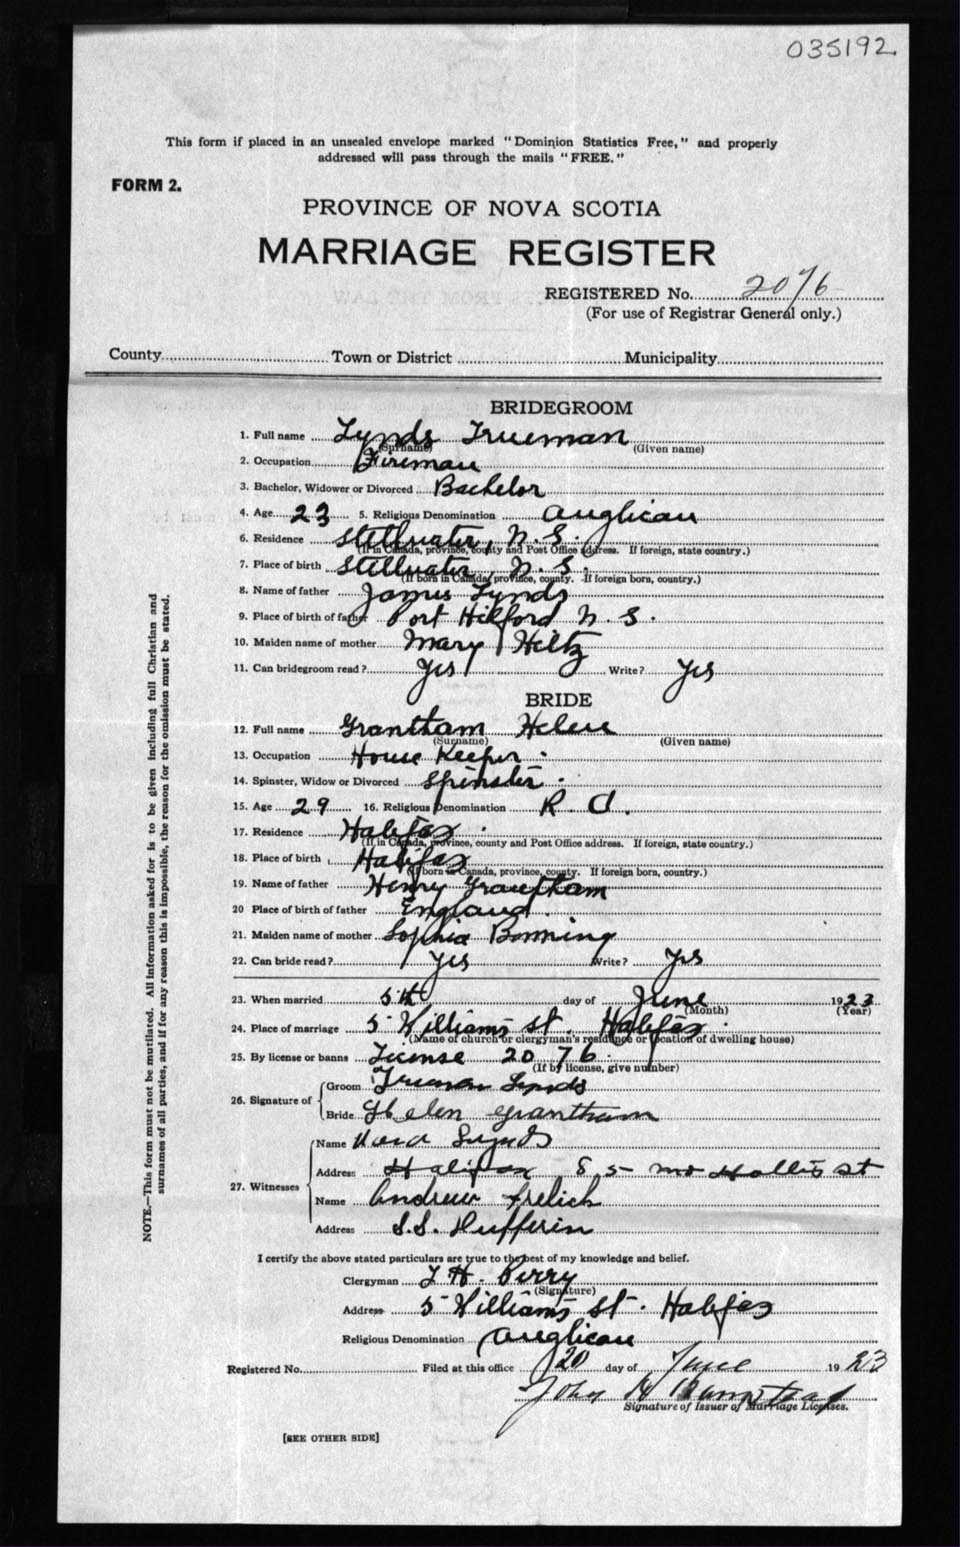 035192.
This form if placed in an unsealed envelope marked "Dominion Statistics Free," and properly
addressed will pass through the mails "FREE."
FORM 2.
PROVINCE OF NOVA SCOTIA
MARRIAGE REGISTER
REGISTERED No. 2076
(For use of Registrar General only.)
County Town or District Municipality
BRIDEGROOM
1. Full name Lynds Trueman
(Surname) (Given name)
2. Occupation Fireman
3. Bachelor, Widower or Divorced Bachelor
4. Age 23 5. Religious Denomination Anglican
6. Residence Stillwater, N. S.
(If in Canada, province, county and Post Office address. If foreign, state country.)
7. Place of birth Stillwater, N. S.
(If born in Canada, province, county. If foreign born, country.)
8. Name of father James Lynds
9. Place of birth of father Port Hilford N. S.
10. Maiden name of mother Mary Hiltz
11. Can bridegroom read? Yes Write? Yes
BRIDE
12. Full name Grantham Helen
(Surname) (Given name)
13. Occupation House Keeper
14. Spinster, Widow or Divorced Spinster
15. Age 29 16. Religious Denomination R C.
17. Residence Halifax
(If in Canada, province, county and Post Office address. If foreign, state country.)
18. Place of birth Halifax
(If born in Canada, province, county. If foreign born, country.)
19. Name of father Henry Grantham
20 Place of birth of father England.
21. Maiden name of mother Sophia
22. Can bride read? Yes Write? Yes
23. When married 5th day of June 1923
(Month) (Year)
24. Place of marriage 5 Williams St. Halifax
(Name of church or clergyman's residence or location of dwelling house)
25. By license or banns License 2076.
(If by license, give number)
26. Signature of
Groom Trueman Lynds
Bride Helen Grantham
27. Witnesses
Name Lynds
Address Halifax 85 Hollis St
Name Andrew Frelich
Address S.S. Dufferin
I certify the above stated particulars are true to the best of my knowledge and belief.
Clergyman H. Perry
(Signature)
Address 5 Williams St. Halifax
Religious Denomination Anglican
Registered No. Filed at this office 20 day of June 1923
John
Signature of Issuer of Marriage Licenses.
[SEE OTHER SIDE]
NOTE.—This form must not be mutilated. All information asked for is to be given including full Christian and
surnames of all parties, and if for any reason this is impossible, the reason for the omission must be stated.